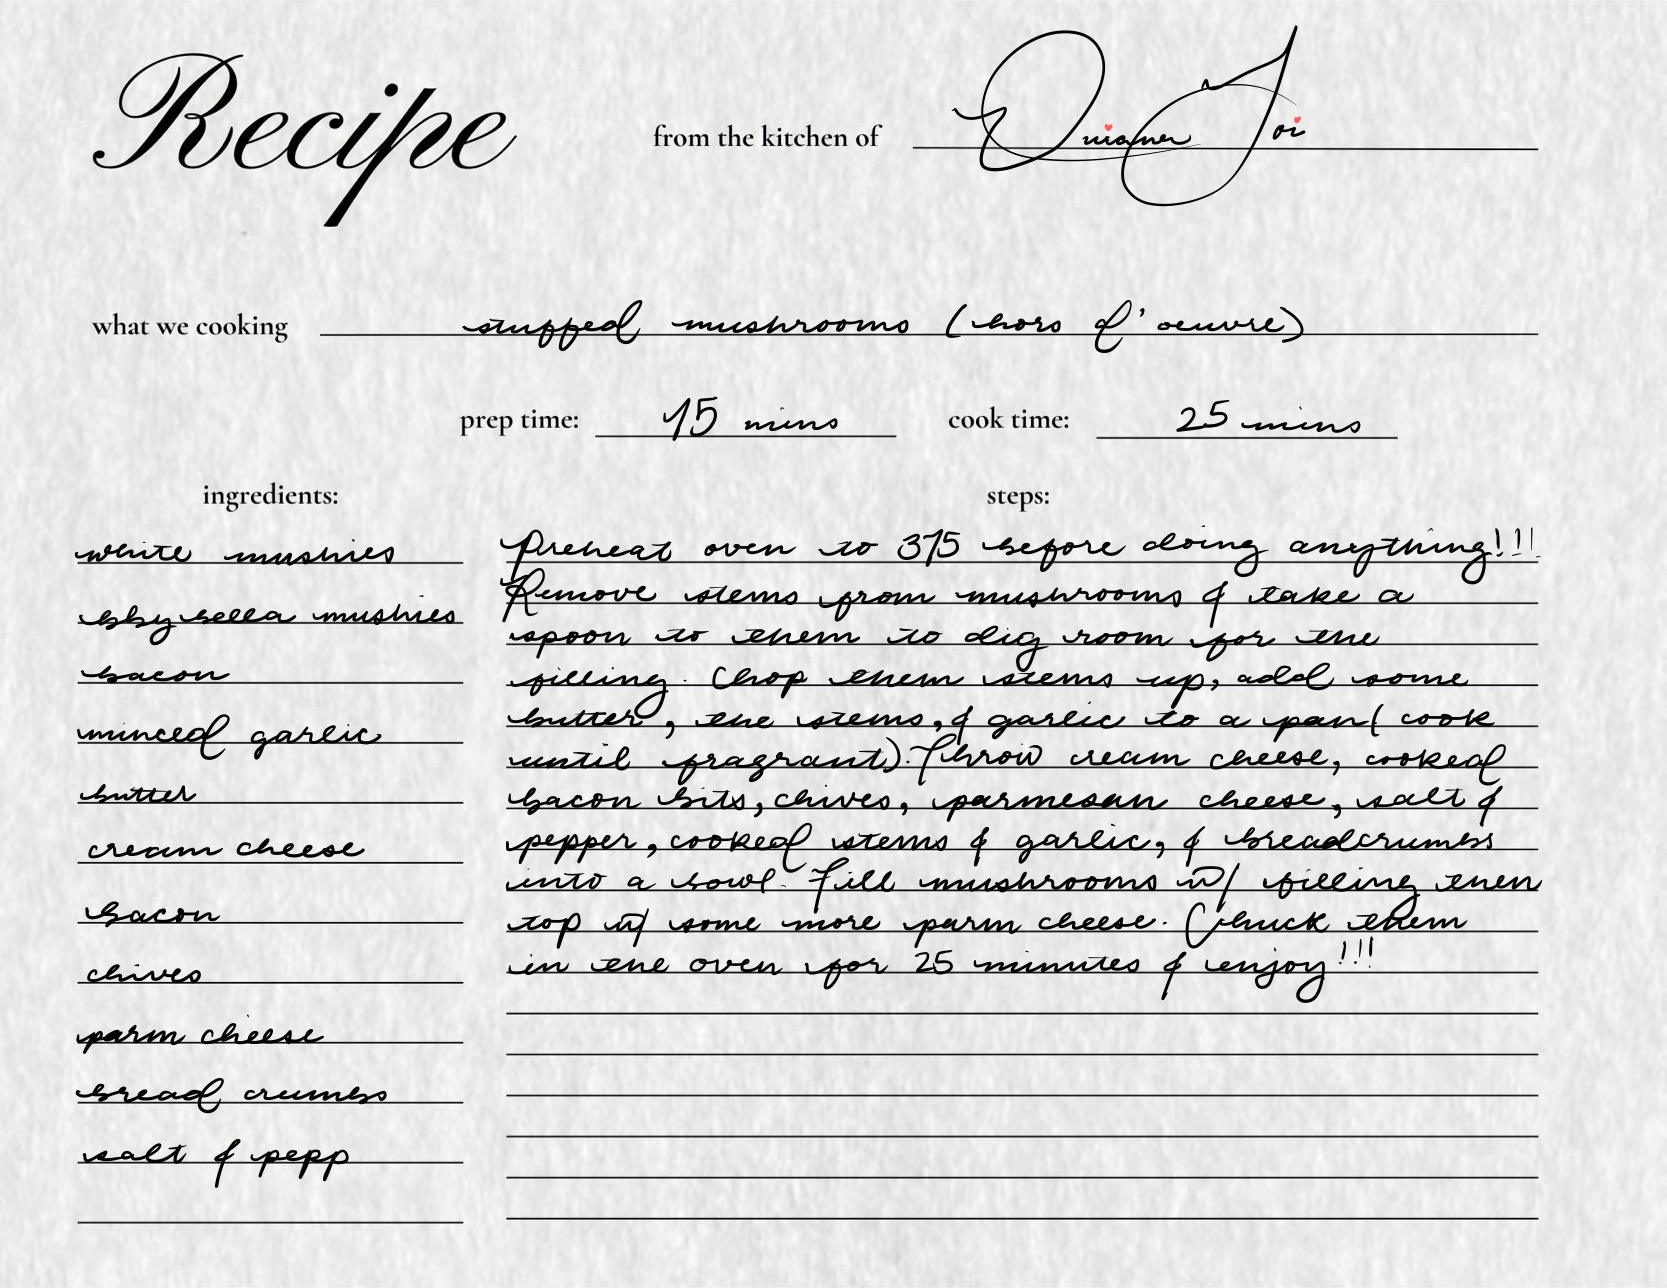 Recipe
from the kitchen of
what we cooking stuffed mushrooms (hors d'oeuvre)
prep time: 15 mins cook time: 25 mins
ingredients:
white mushies
bby bella mushies
bacon
minced garlic
butter
cream cheese
bacon
chives
parm cheese
bread crumbs
salt & pepp
steps:
Preheat oven to 375 before doing anything!!!
Remove stems from mushrooms & take a
spoon to them to dig room for the
filling. Chop them stems up, add some
butter, the stems, & garlic to a pan( cook
until fragrant). Throw cream cheese, cooked
bacon bits, chives, parmesan cheese, salt &
pepper, cooked stems & garlic, & breadcrumbs
into a bowl. Fill mushrooms w/ filling then
top w/ some more parm cheese. Chuck them
in the oven for 25 minutes & enjoy!!!